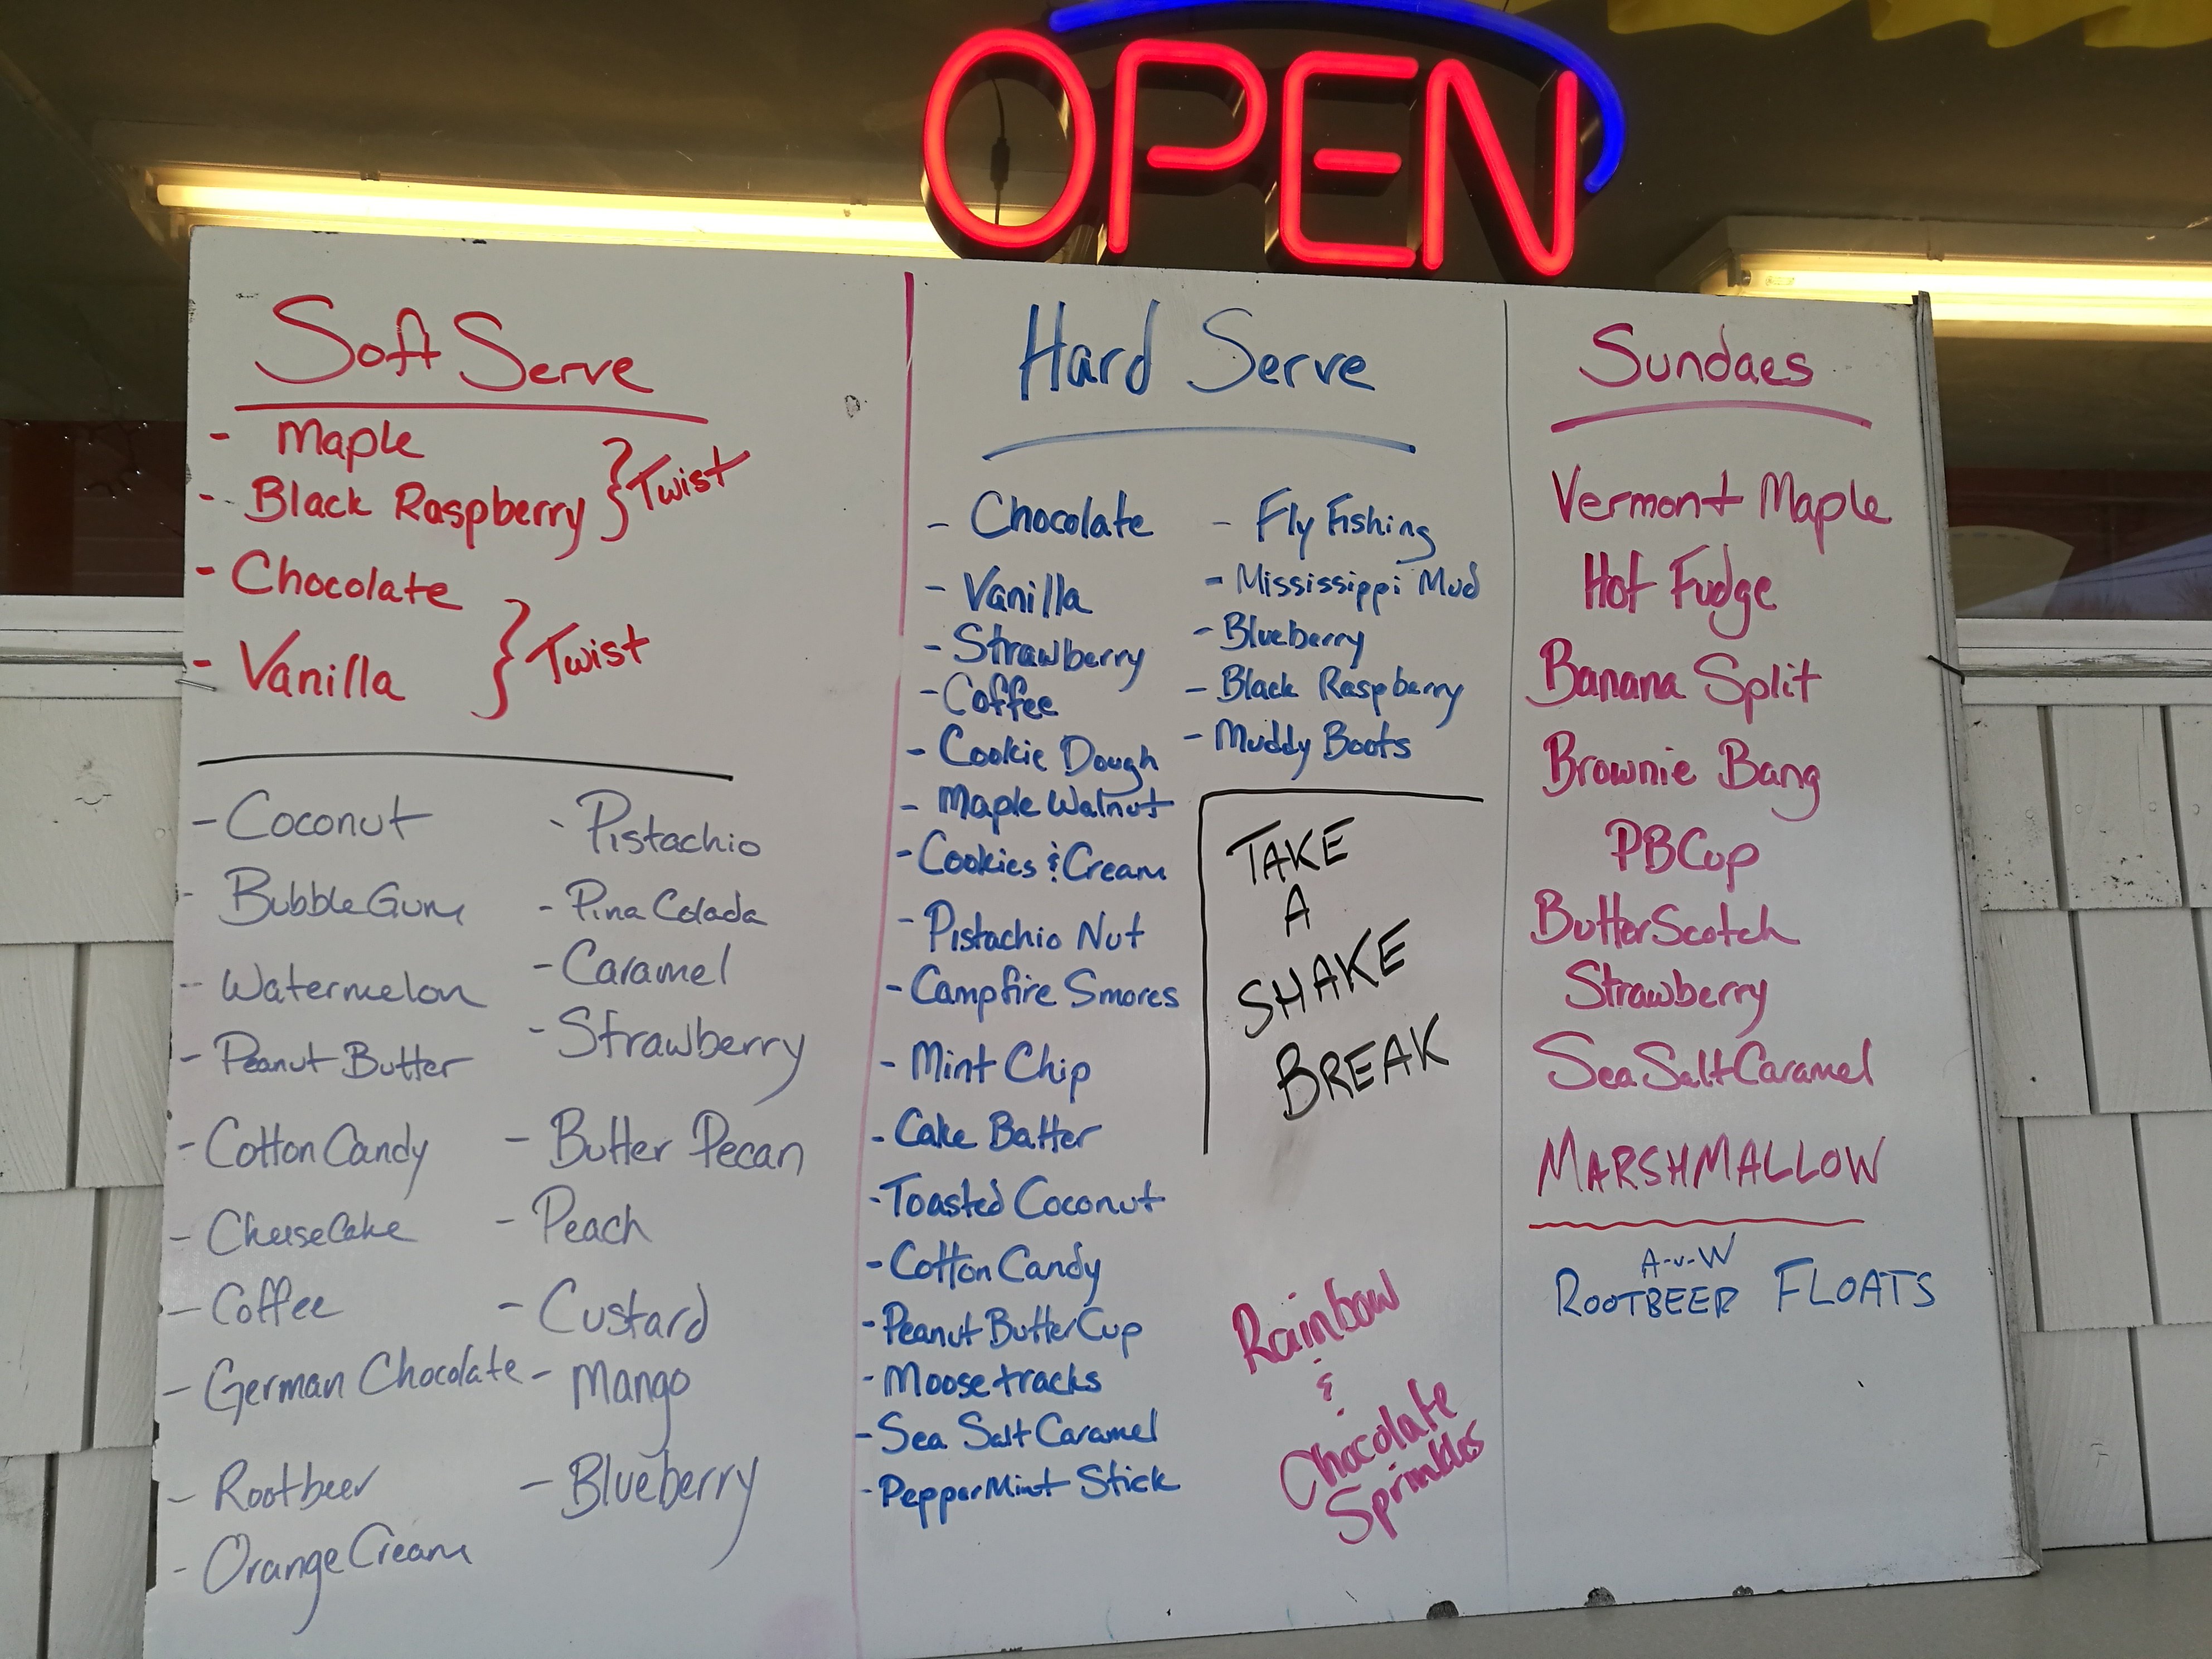 OPEN
Soft Serve
- Maple
- Black Raspberry } Twist
- Chocolate
- Vanilla } Twist
- Coconut
- Bubble Gum
- Watermelon
- Peanut Butter
- Cotton Candy
- Cheese Cake
- Coffee
- German Chocolate
- Rootbeer
- Orange Cream
- Pistachio
- Pina Colada
- Caramel
- Strawberry
- Butter Pecan
- Peach
- Custard
- Mango
- Blueberry
Hard Serve
- Chocolate
- Vanilla
- Strawberry
- Coffee
- Cookie Dough
- Maple Walnut
- Cookies & Cream
- Pistachio Nut
- Campfire Smores
- Mint Chip
- Cake Batter
- Toasted Coconut
- Cotton Candy
- Peanut Butter Cup
- Moosetracks
- Sea Salt Caramel
- PepperMint Stick
- Fly Fishing
- Mississippi Mud
- Blueberry
- Black Raspberry
- Muddy Boots
TAKE
A
SHAKE
BREAK
Rainbow
&
Chocolate
Sprinkles
Sundaes
Vermont Maple
Hot Fudge
Banana Split
Brownie Bang
PB Cup
ButterScotch
Strawberry
Sea Salt Caramel
MARSHMALLOW
A-n-W
ROOTBEER FLOATS